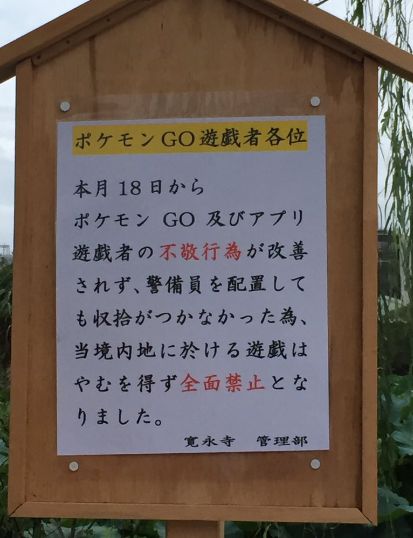 ポケモンGO遊戯者各位
本月18日から
ポケモン GO 及びアプリ
遊戯者の不敬行為が改善
されず、警備員を配置して
も収拾がつかなかった為、
当境内地に於ける遊戯は
やむを得ず全面禁止とな
りました。
寛永寺 管理部